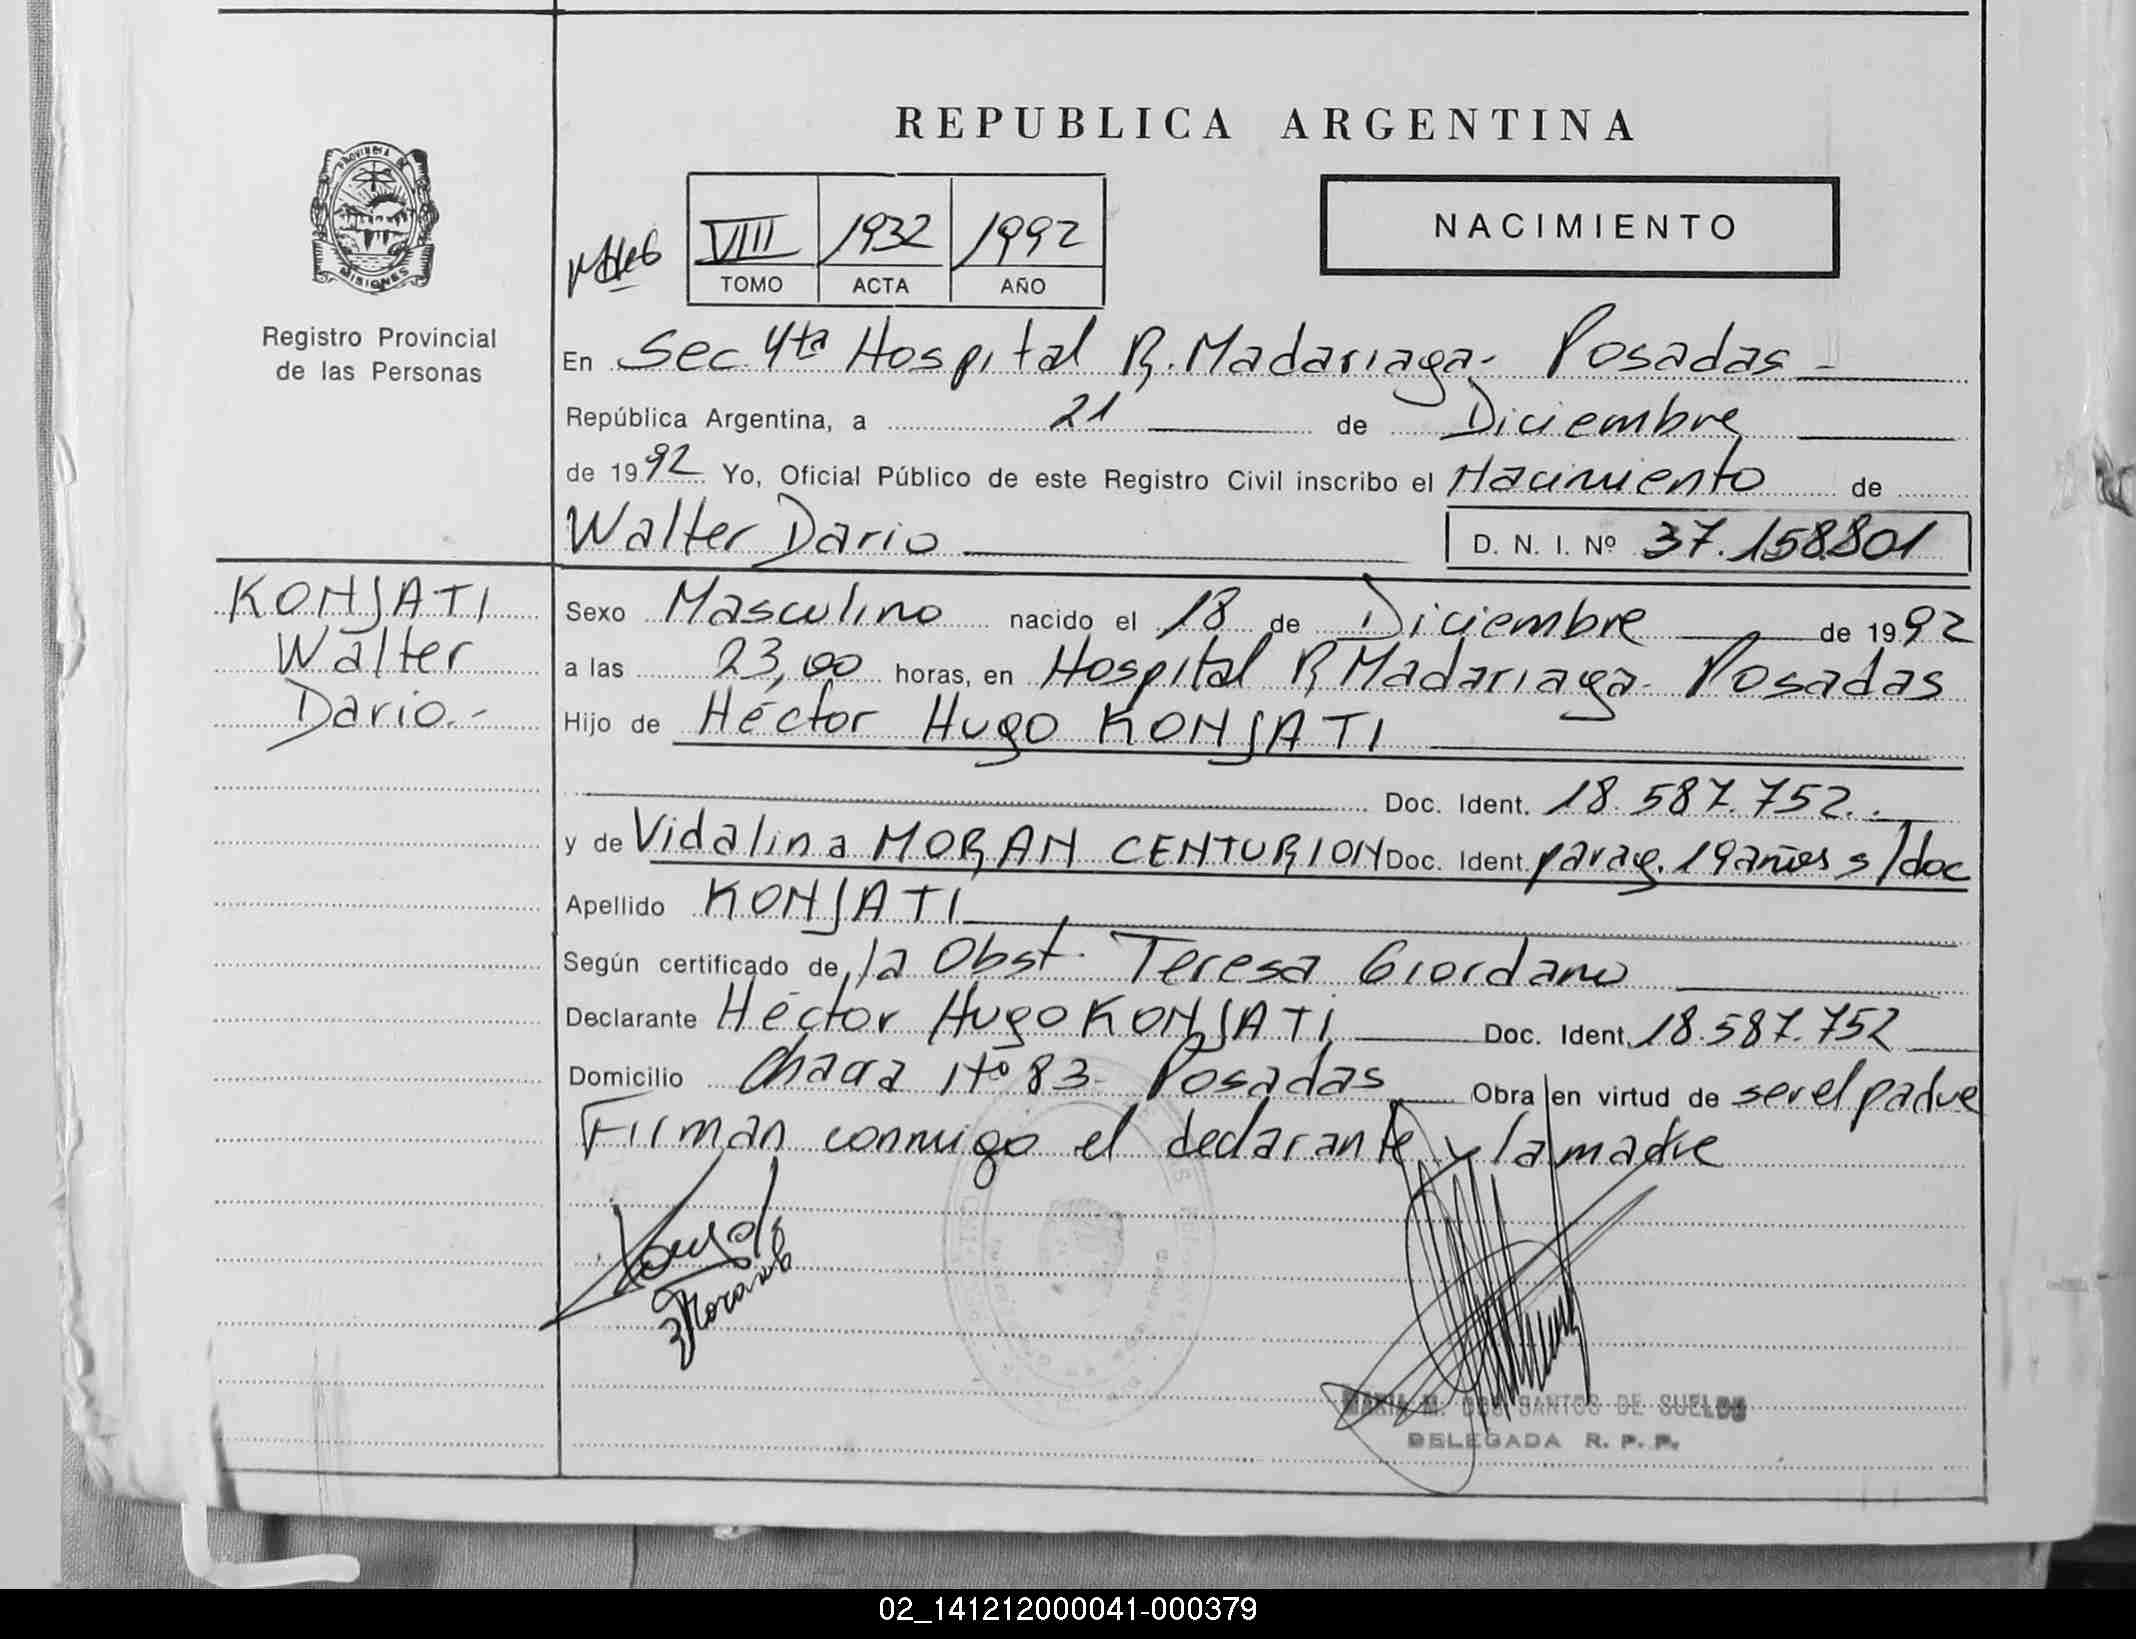 REPUBLICA ARGENTINA
PROVINCIA DE
MISIONES
Registro Provincial
de las Personas
VIII 1932 1992
TOMO ACTA AÑO
NACIMIENTO
En Sec. 4ta Hospital R. Madariaga- Posadas -
República Argentina, a 21 de Diciembre
de 1992 Yo, Oficial Público de este Registro Civil inscribo el Nacimiento de
Walter Dario D. N. I. Nº 37.158.801
KONJATI
Walter
Dario.-
Sexo Masculino nacido el 18 de Diciembre de 1992
a las 23,00 horas, en Hospital R Madariaga- Posadas
Hijo de Héctor Hugo KONJATI
Doc. Ident. 18.587.752.
y de Vidalina MORAN CENTURION Doc. Ident. parag. 19 años s/doc
Apellido KONJATI
Según certificado de la Obst. Teresa Giordano
Declarante Héctor Hugo KONJATI Doc. Ident. 18.587.752
Domicilio Chacra Nº 83- Posadas Obra en virtud de ser el padre
Firman conmigo el declarante y la madre
MARIA M. DOS SANTOS DE SUELDO
DELEGADA R. P. P.
02_141212000041-000379